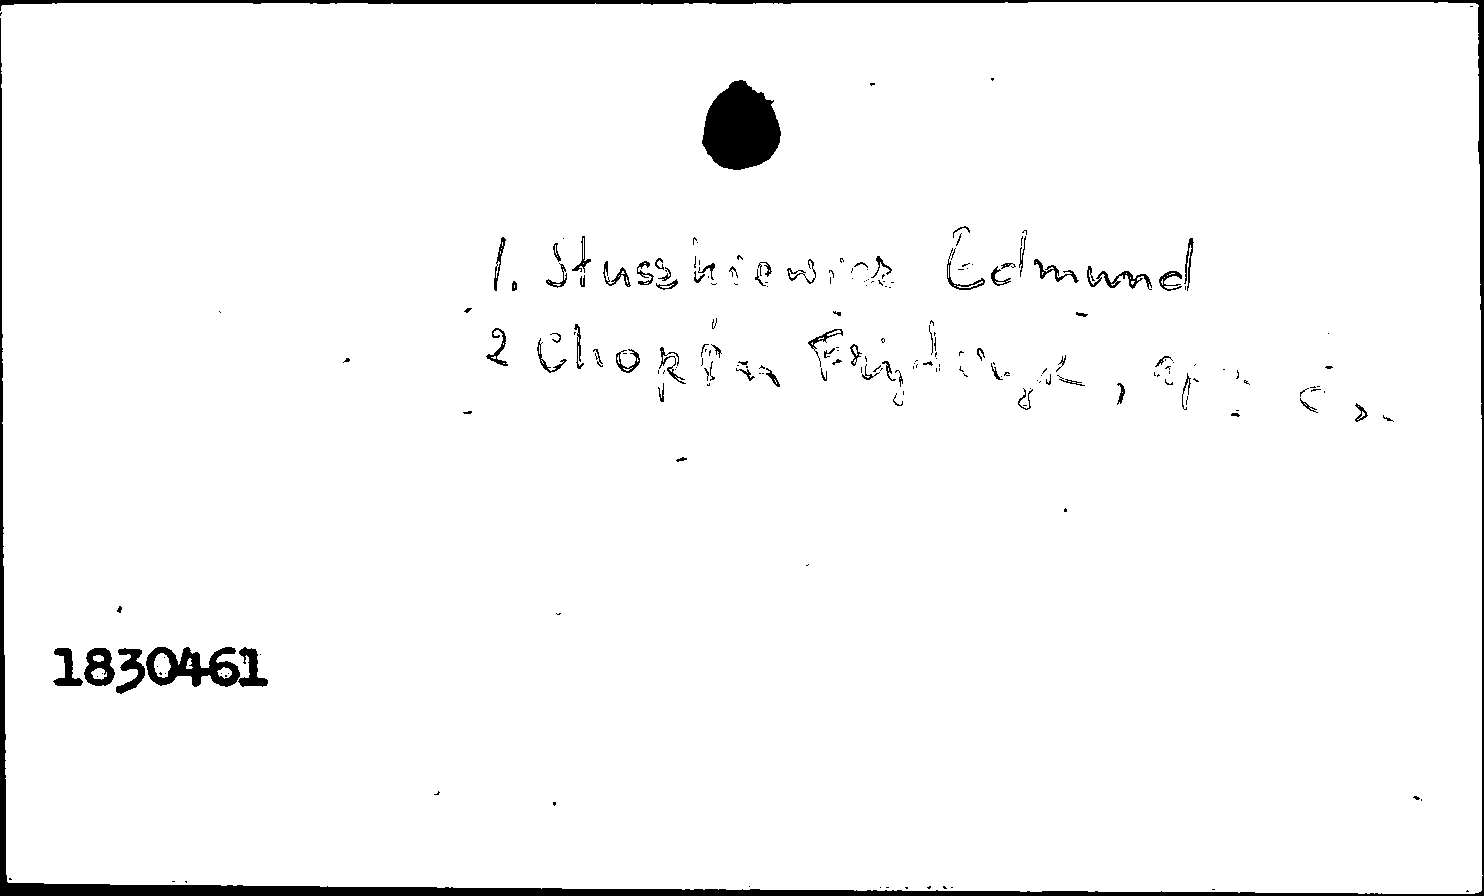 1. Stuszkiewicz Edmund
2 Chopin Fryderyk,
1830461